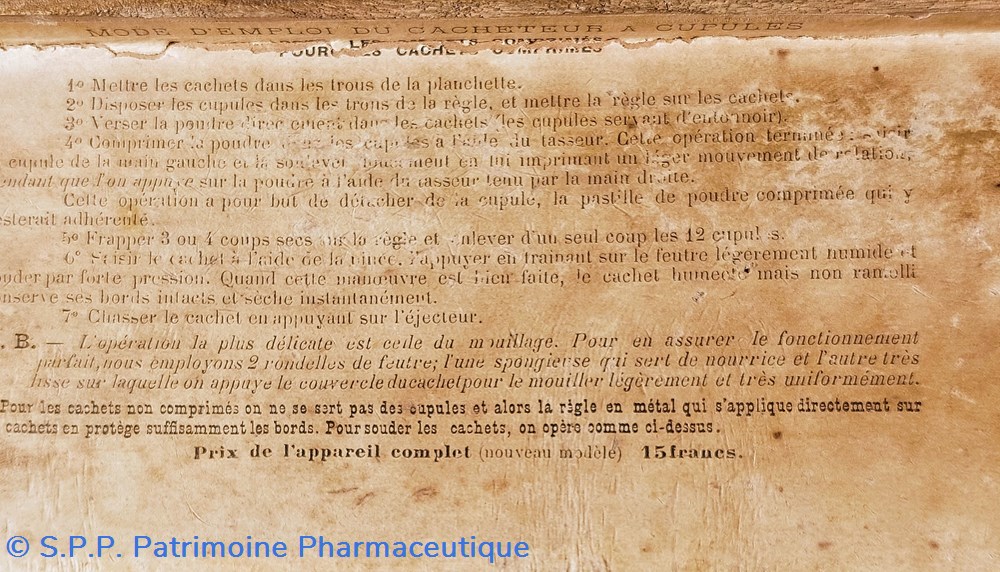 MODE D'EMPLOI DU CACHETEUR A CUPULES
POUR LES CACHETS COMPRIMÉS
1º Mettre les cachets dans les trous de la planchette.
2º Disposer les cupules dans les trous de la règle, et mettre la règle sur les cachets.
3º Verser la poudre directement dans les cachets (les cupules servant d'entonnoir).
4º Comprimer la poudre dans les cupules à l'aide du tasseur. Cette opération terminée saisir
cupule de la main gauche et la soulever tout en lui imprimant un léger mouvement de rotation,
endant que l'on appuye sur la poudre à l'aide du tasseur tenu par la main droite.
Cette opération a pour but de détacher de la cupule, la pastille de poudre comprimée qui y
esterait adhérente.
5º Frapper 3 ou 4 coups secs sur la règle et enlever d'un seul coup les 12 cupules.
6º Saisir le cachet à l'aide de la pince, l'appuyer en trainant sur le feutre légèrement humide et
ouder par forte pression. Quand cette manœuvre est bien faite, le cachet humecté mais non ramolli
onserve ses bords intacts et sèche instantanément.
7º Chasser le cachet en appuyant sur l'éjecteur.
. B. — L'opération la plus délicate est celle du mouillage. Pour en assurer le fonctionnement
parfait, nous employons 2 rondelles de feutre; l'une spongieuse qui sert de nourrice et l'autre très
lisse sur laquelle on appuye le couvercle du cachet pour le mouiller légèrement et très uniformément.
Pour les cachets non comprimés on ne se sert pas des cupules et alors la règle en métal qui s'applique directement sur
cachets en protège suffisamment les bords. Pour souder les cachets, on opère comme ci-dessus.
Prix de l'appareil complet (nouveau modèle) 15 francs.
© S.P.P. Patrimoine Pharmaceutique